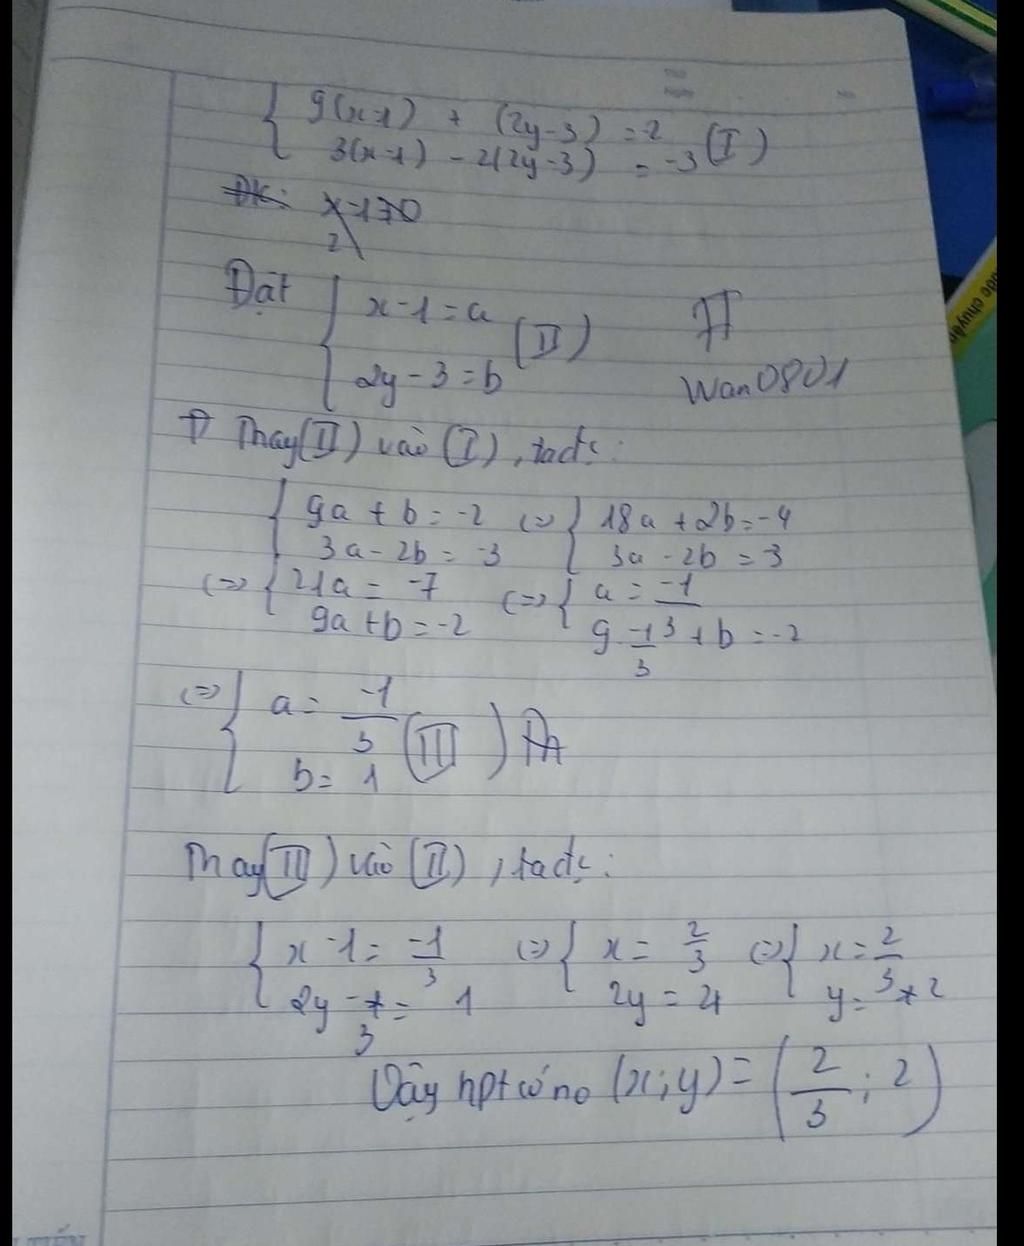 { 9(x-1) + (2y-3) = -2
3(x-1) - 2(2y-3) = -3 (I)
ĐK: x-1≠0
2
Đặt { x-1 = a
2y-3 = b (II)
Wan0801
Thay (II) vào (I), tađc:
{ 9a + b = -2 (=> { 18a + 2b = -4
3a - 2b = -3 3a - 2b = 3
(=> { 21a = -7 (=> { a = -1/3
9a + b = -2 9 -1/3 + b = -2
(=> { a = -1/3 (III)
b = 1
Thay (III) vào (II), tađc:
{ x-1 = -1/3 (=> { x = 2/3 (=> { x = 2/3
2y - 3 = 1 2y = 4 y = 2
Vậy hpt có no (x; y) = (2/3; 2)